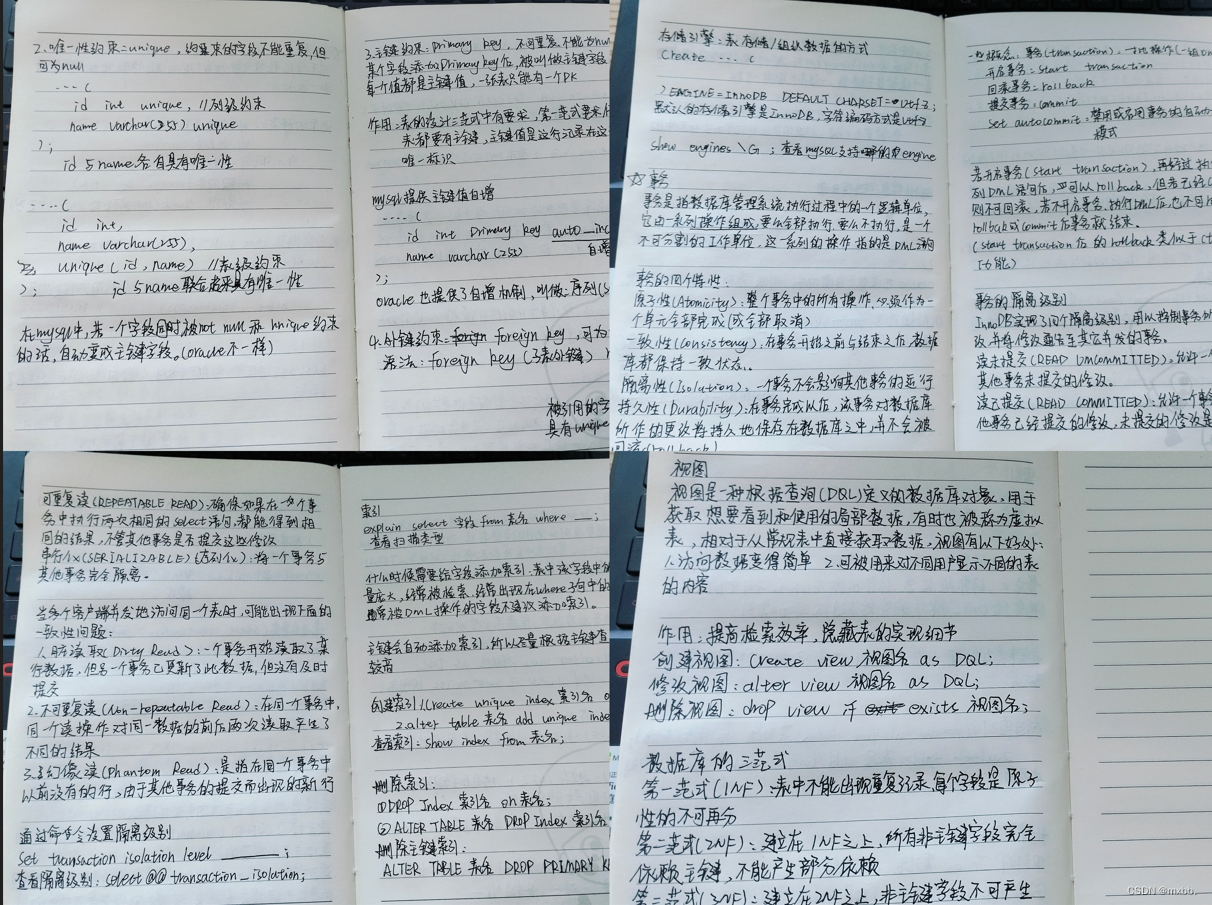 2.唯一性约束=unique，约束的字段不能重复，但
可为null
...(
id int unique, //列级约束
name varchar(255) unique
);
id与name各自具有唯一性
....(
id int,
name varchar(255),
unique(id,name) //表级约束
); id与name联合起来具有唯一性
在mysql中，若一个字段同时被not null和unique约束
的话，自动变成主键字段。(oracle不一样)
3.主键约束:primary key，不可重复，不能为null
某个字段添加Primary key后，被叫做主键字段
每个值都是主键值，一张表只能有一个PK
作用:表的设计三范式中有要求，第一范式要求
来都要有主键，主键值是这行记录在这
唯一标识
mysql提供主键值自增
.....(
id int Primary key auto_inc
name varchar(255) 自增
);
oracle也提供了自增机制，叫做:序列(s
4.外键约束=foreign key，可为
语法:foreign key(子表外键)
被引用的字
具有unique
存储引擎:表存储/组织数据的方式
Create ... (
)ENGINE=InnoDB DEFAULT CHARSET=utf8;
默认的存储引擎是InnoDB,字符编码方式是utf8
show engines \G ;查看mysql支持哪的engine
☆事务
事务是指数据库管理系统执行过程中的一个逻辑单位，
它由一系列操作组成，要么全部执行，要么不执行，是一个
不可分割的工作单位，这一系列的操作指的是DML语句
事务的四个特性:
原子性(Atomicity):整个事务中的所有操作，必须作为一
个单元全部完成(或全部取消)
一致性(Consistency):在事务开始之前与结束之后，数据
库都保持一致状态。
隔离性(Isolation):一个事务不会影响其他事务的运行
持久性(Durability):在事务完成以后，该事务对数据库
所作的更改将持久地保存在数据库之中，并不会被
回滚(rollback)
事务(transaction):一批操作(一组DM
开启事务:start transaction
回滚事务:rollback
提交事务:commit
Set autocommit:禁用或启用事务的自动
模式
若开启事务(start transaction)，再经过执
列DML语句后，
则不可回滚，若不开启事务，执行DML后，也不可
rollback或commit后事务就结束。
(start transaction后的rollback类似于ct
功能)
事务的隔离级别
InnoDB实现了四个隔离级别，用以控制事务所
改，并将修改通告至其它并发的事务。
读未提交(READ UNCOMMITTED):允许一个
其他事务未提交的修改。
读已提交(READ COMMITTED):允许一个事务
他事务已经提交的修改，未提交的修改是
可重复读(REPEATABLE READ):确保如果在一个事
务中执行两次相同的select语句，都能得到相
同的结果，不管其他事务是否提交这些修改
串行化(SERIALIZABLE)(序列化):将一个事务与
其他事务完全隔离。
当多个客户端并发地访问同一个表时，可能出现下面的
一致性问题:
1.脏读取(Dirty Read):一个事务开始读取了某
行数据，但另一个事务已更新了此数据，但没有及时
提交
2.不可重复读(Non-repeatable Read):在同一个事务中，
同一个读操作对同一数据的前后两次读取产生了
不同的结果
3.幻像读(Phantom Read):是指在同一个事务中
以前没有的行，由于其他事务的提交而出现的新行
通过命令设置隔离级别
Set transaction isolation level ______ ;
查看隔离级别:select @@transaction_isolation;
索引
explain select 字段 from 表名 where ___;
查看扫描类型
什么时候需要给字段添加索引:表中该字段中的
量庞大，经常被检索，经常出现在where子句中的
经常被DML操作的字段不建议添加索引。
主键会自动添加索引，所以尽量根据主键查
较高
创建索引:1.Create unique index 索引名 o
2.alter table 表名 add unique inde
查看索引:show index from 表名;
删除索引:
①DROP Index 索引名 on 表名;
②ALTER TABLE 表名 DROP Index 索引名
删除主键索引:
ALTER TABLE 表名 DROP PRIMARY K
视图
视图是一种根据查询(DQL)定义的数据库对象，用于
获取想要看到和使用的局部数据，有时也被称为虚拟
表，相对于从常规表中直接获取数据，视图有以下好处:
1.访问数据变得简单 2.可被用来对不同用户显示不同的表
的内容
作用:提高检索效率，隐藏表的实现细节
创建视图:Create view 视图名 as DQL;
修改视图:alter view 视图名 as DQL;
删除视图:drop view if exists 视图名;
数据库的三范式
第一范式(1NF):表中不能出现重复记录，每个字段是原子
性的不可再分
第二范式(2NF):建立在1NF之上，所有非主键字段完全
依赖主键，不能产生部分依赖
第三范式(3NF):建立在2NF之上，非主键字段不可产生
CSDN @mxbb.